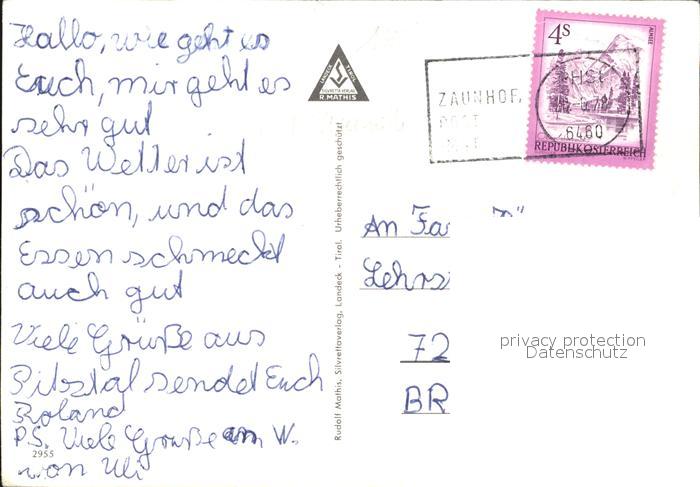 Hallo, wie geht es
Euch, mir geht es
sehr gut
Das Wetter ist
schön, und das
Essen schmeckt
auch gut
Viele Grüße aus
Pitztal sendet Euch
Roland
P.S. Viele Grüße an W.
von Uli
2955
LANDECK TIROL
SILVRETTA VERLAG
R. MATHIS
Rudolf Mathis, Silvrettaverlag, Landeck - Tirol. Urheberrechtlich geschützt
ZAUNHOF,
POST
4S
ALMSEE
6460
REPUBLIK ÖSTERREICH
An Fa
Lehrs
72
BR
privacy protection
Datenschutz